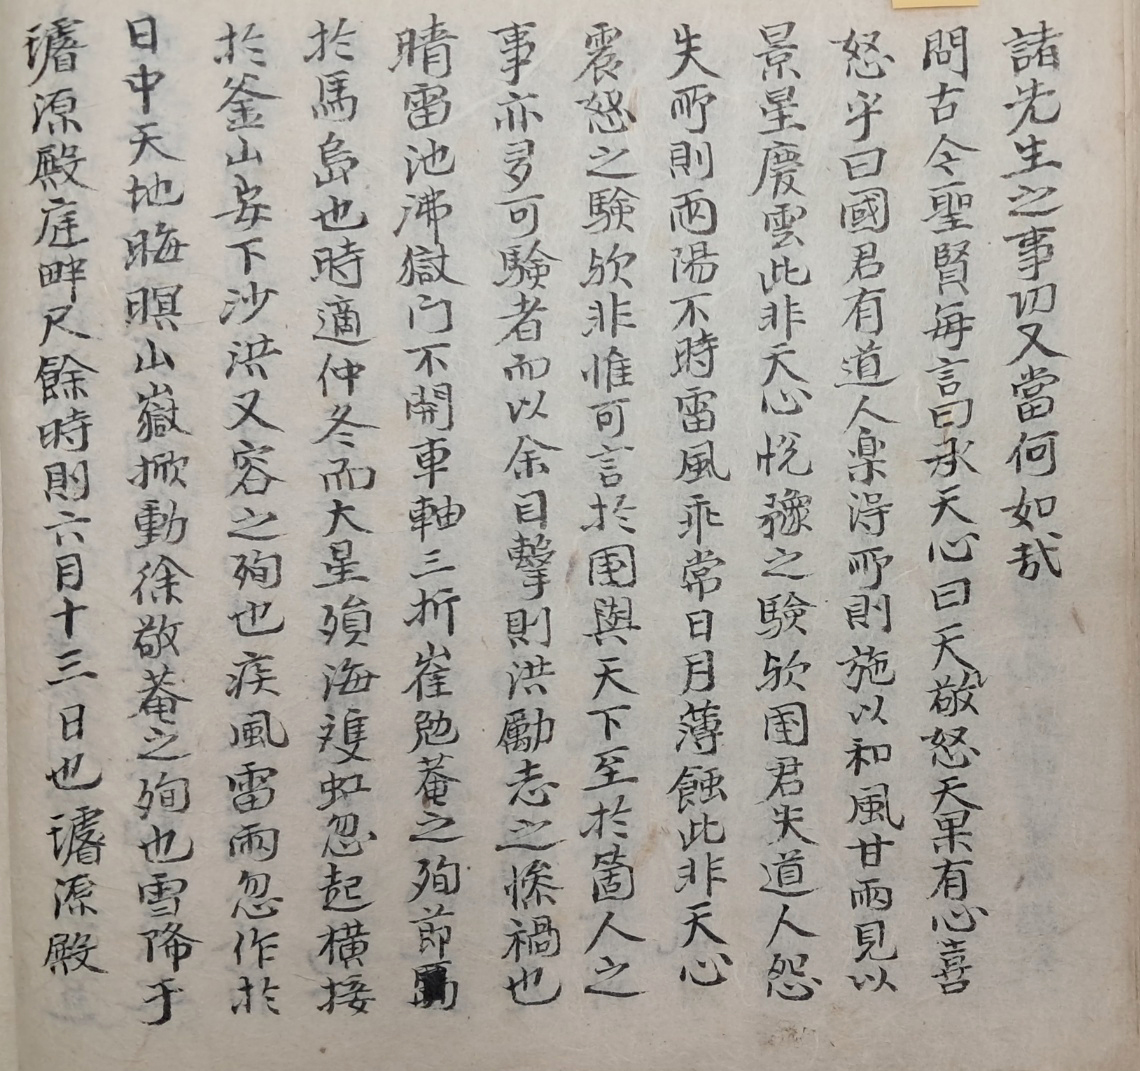 諸先生之事功又當何如哉
問古今聖賢每言曰承天心曰天敬怒天果有心喜
怒乎曰國君有道人楽得所則施以和風甘雨見以
景星慶雲此非天心悅豫之験欤國君失道人怨
失所則雨陽不時雷風乖常日月薄蝕此非天心
震怒之験欤非惟可言於國與天下至於箇人之
事亦多可験者而以余目擊則洪勵志之惨禍也
晴雷池沸獄门不開車軸三折崔勉菴之殉節
於馬島也時適仲冬而大星殞海雙虹忽起橫接
於釜山安下沙洪又容之殉也疾風雷雨忽作於
日中天地晦暝山嶽掀動徐敬菴之殉也雪降于
璿源殿庭畔尺餘時則六月十三日也璿源殿